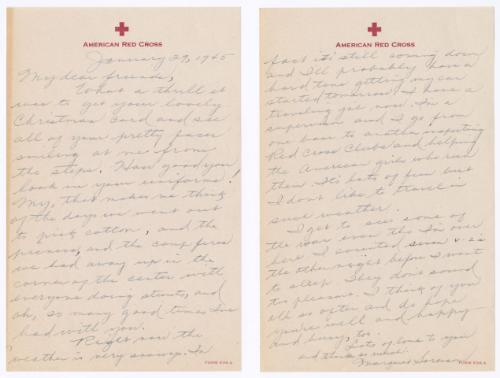 AMERICAN RED CROSS
January 29, 1945
My dear friends,
What a thrill it
was to get your lovely
Christmas card and see
all of your pretty faces
smiling at me from
the steps! How good you
look in your uniforms!
My, that makes me think
of the days we went out
to pick cotton, and the
picnics, and the camp fires
we had away up in the
corner of the center with
everyone doing stunts, and
oh, so many good times I've
had with you.
Right now the
weather is very snowy. In
AMERICAN RED CROSS
fact it's still coming down
and I'll probably have a
hard time getting my car
started tomorrow. I have a
traveling job now. I'm a
supervisor and I go from
one base to another inspecting
Red Cross Clubs and helping
the American girls who run
them. It's lots of fun but
I don't like to travel in
such weather.
I get to see some of
the war even tho I'm over
here. I counted seven
the other night before I went
to sleep. They don't sound
too pleasant. I think of you
all so often and do hope
you're well and happy
and busy, too.
Lots of love to you
and thanks so much.
Margaret